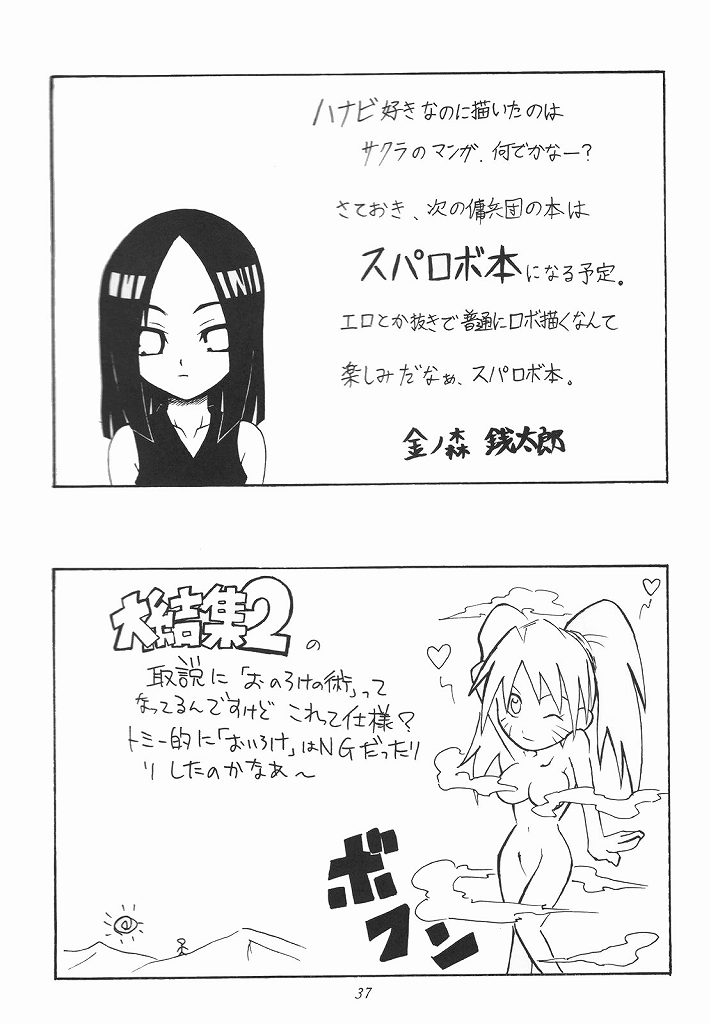 ハナビ好きなのに描いたのは
サクラのマンガ、何でかなー?
さておき、次の傭兵団の本は
スパロボ本になる予定。
エロとか抜きで普通にロボ描くなんて
楽しみだなぁ、スパロボ本。
金ノ森 銭太郎
大結集2の
取説に「おのろけの術」って
なってるんですけど これって仕様?
トミー的に「おいろけ」はNGだったり
りしたのかなあ〜
ボフン
37